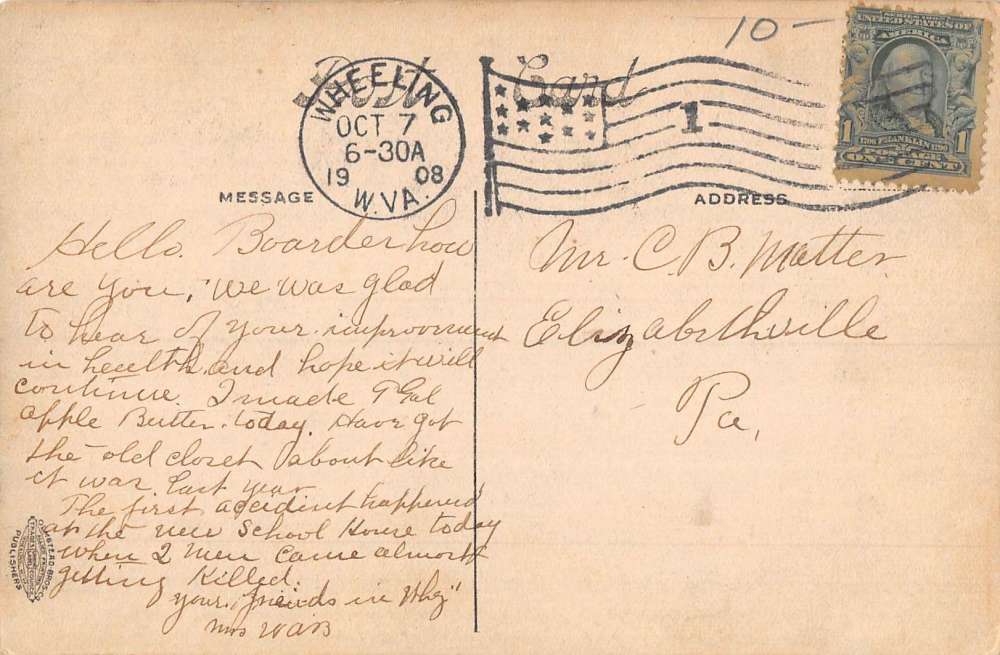 10-
Post Card
SERIES 1902
UNITED STATES OF
AMERICA
1 1706 FRANKLIN 1790 1
POSTAGE
ONE CENT
WHEELING
OCT 7
6-30A
1908
W.VA.
1
MESSAGE
ADDRESS
Hello. Boarder how
are you, we was glad
to hear of your improovment
in health and hope it will
continue. I made 7 Gal
apple Butter. today. Have got
the old closet about like
it was last year
The first accident happened
at the new School House today
when 2 men came almost
getting Killed.
your friends in Whg"
Mrs WAB
Mr. C. B. Matter
Elizabethville
Pa,
PUBLISHERS